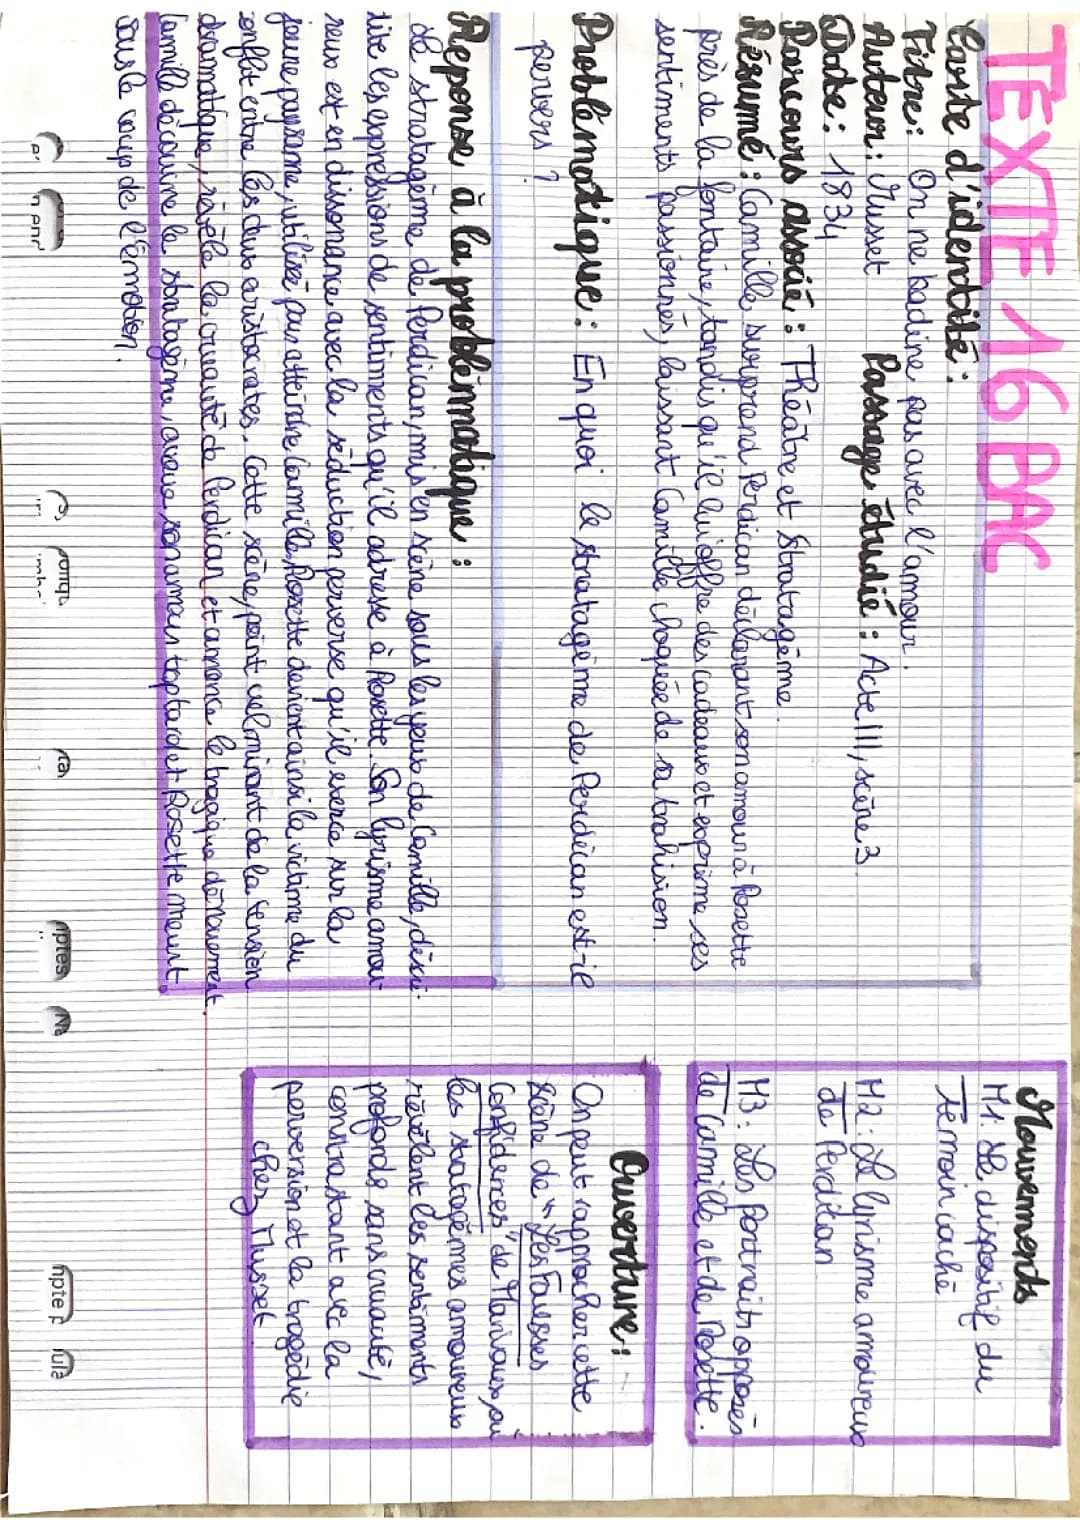 TEXTE 16 BAC
Carte d'idendité :
Titre : On ne badine pas avec l'amour.
Auteur : Musset Passage étudié : Acte III, scène 3
Date : 1834
Parcours associé : Théâtre et Stratagème.
Résumé : Camille surprend Perdican déclarant son amour à Rosette
près de la fontaine, tandis qu'il lui offre des cadeaux et exprime ses
sentiments passionnés, laissant Camille choquée de sa trahision.
Problématique : En quoi le stratagème de Perdican est-il
pervers ?
Réponse à la problèmmatique :
de stratagème de Perdican, mis en scène sous les yeux de Camille,
tive les expressions de sentiments qu'il adresse à Rosette. Son lyrisme amou-
reux est en dissonance avec la séduction perverse qu'il exerce sur la
jeune paysanne, utilisée pour atteindre Camille, Rosette devient ainsi la victime du
conflit entre les deux aristocrates. Cette scène, point culminant de la tension
dramatique, révèle la cruauté de Perdican et amorce le tragique dénouement.
Camille découvre le stratagème, avoue son amour trop tard et Rosette meurt
sous le coup de l'émotion.
Mouvements
M1: Le dispositif du
Témoin caché
M2: Le lyrisme amoureux
de Perdican
M3: Les portraits opposés
de Camille et de Rosette.
Ouverture :
On peut rapprocher cette
scène de "Les Fausses
Confidences" de Marivaux, où
les stratagèmes amoureux
révèlent les sentiments
profonds sans cruauté,
constrastant avec la
perversion et la tragédie
chez Musset.